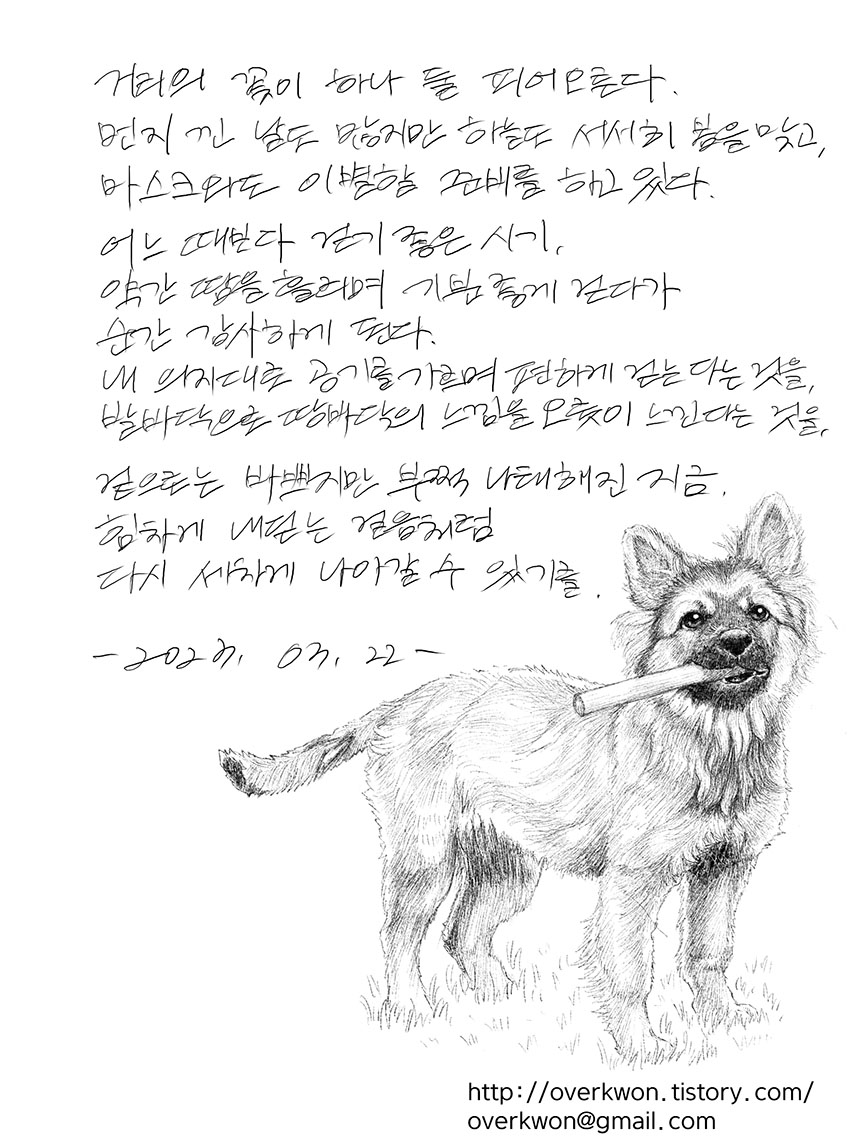 거리의 꽃이 하나 둘 피어오른다.
먼지 낀 날도 많지만 하늘도 서서히 봄을 맞고,
마스크와도 이별할 준비를 하고 있다.
어느 때보다 걷기 좋은 시기,
약간 땀을 흘리며 기분 좋게 걷다가
순간 감사하게 된다.
내 의지대로 공기를 가르며 편하게 걷는다는 것을,
발바닥으로 땅바닥의 느낌을 오롯이 느낀다는 것을,
겉으로는 바쁘지만 부쩍 나태해진 지금,
힘차게 내딛는 걸음처럼
다시 세차게 나아갈 수 있기를.
-2023. 03. 22-
http://overkwon.tistory.com/
overkwon@gmail.com